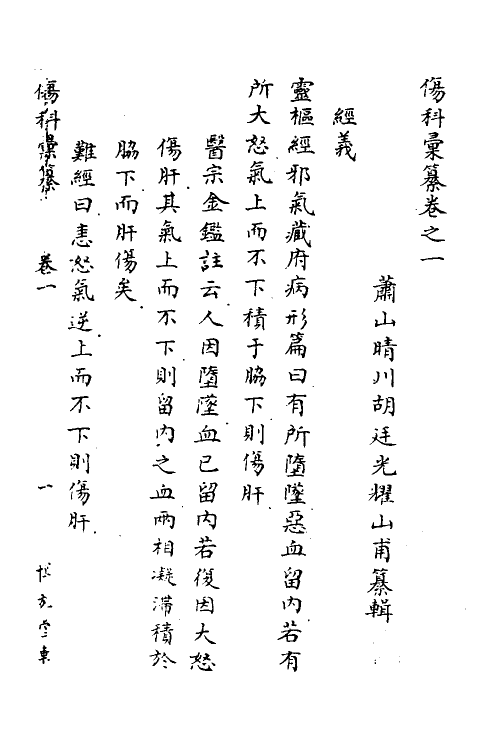 傷科彙纂卷之一
蕭山晴川胡廷光耀山甫纂輯
經義
靈樞經邪氣藏府病形篇曰有所墮墜惡血留內若有
所大怒氣上而不下積于脇下則傷肝
醫宗金鑑註云人因墮墜血已留內若復因大怒
傷肝其氣上而不下則留內之血兩相凝滯積於
脇下而肝傷矣
難經曰恚怒氣逆上而不下則傷肝
傷科彙纂 卷一 一